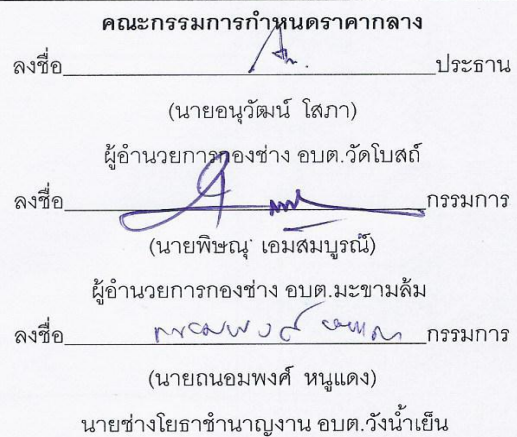 คณะกรรมการกำหนดราคากลาง
ลงชื่อ ประธาน
(นายอนุวัฒน์ โสภา)
ผู้อำนวยการกองช่าง อบต.วัดโบสถ์
ลงชื่อ กรรมการ
(นายพิษณุ เอมสมบูรณ์)
ผู้อำนวยการกองช่าง อบต.มะขามล้ม
ลงชื่อ กรรมการ
(นายถนอมพงศ์ หนูแดง)
นายช่างโยธาชำนาญงาน อบต.วังน้ำเย็น